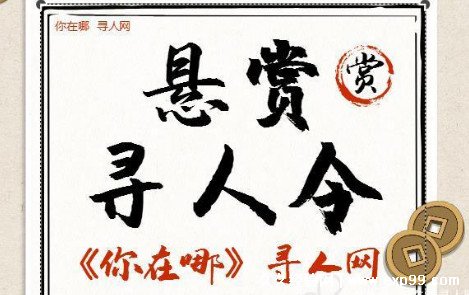 你在哪 寻人网
悬赏
赏
寻人令
《你在哪》寻人网
www.exp99.com